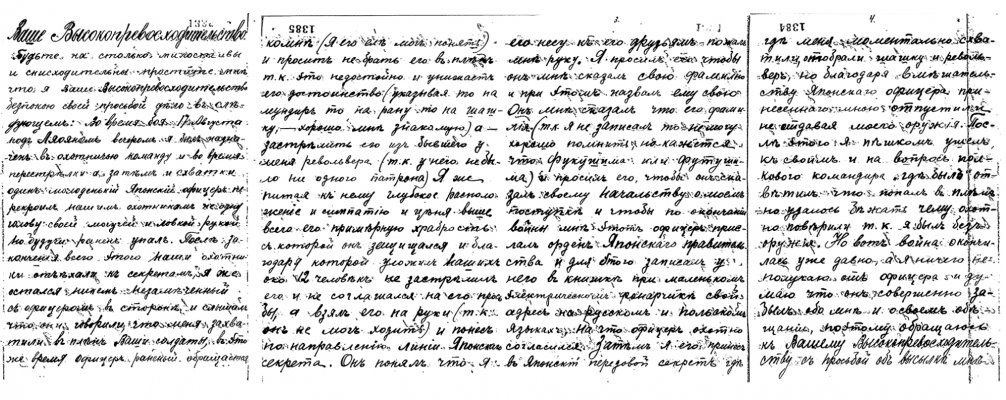 Ваше Высокопревосходительство
Будьте на столько милостивы
и снисходительны простите меня
что я Ваше Высокопревосходительство
безпокою своей просьбой дело въ слѣ-
дующемъ: Во время боя 17 Августа
подъ Ляояномъ вечеромъ я былъ назна-
ченъ въ охотничью команду и во время
перестрѣлки а затѣмъ и схватки
одинъ молоденькій Японскій офицеръ пе-
рекроилъ нашимъ охотникамъ не одну
голову своей могучей и ловкой рукой
но будучи раненъ упалъ. Послѣ за-
кончения всего этого наши охотни-
ки отъѣхали къ секретамъ, я же
остался никемъ незамѣченный
съ офицеромъ въ сторонѣ и слышалъ
что они говорили, что меня захва-
тили въ плѣнъ Ваши солдаты, въ это
же время офицеръ раненый обращается
1385
комнѣ (Я его едъ могъ понять)
и проситъ не брать его въ плѣнъ
т.к. это недостойно и унижаетъ
его достоинство (указывая то на
мундиръ то на рану то на шаш-
ку, — хорошо мнѣ знакомую) а —
застрѣлить его изъ бывшего у
меня револьвера (т.к. у него не бы-
ло ни одного патрона) Я же
питая къ нему глубокое располо-
жение и симпатію и цѣня выше
всего его примѣрную храбрость
съ которой онъ защищался и бла-
годаря которой уложилъ нашихъ
око 12 человѣкъ не застрѣлилъ
его и не соглашался на его прось
бы, а взялъ его на руки (т.к.
онъ не могъ ходить) и понесъ
по направленію линіи Японскаго
секрета. Онъ понялъ что я
3.
его несу къ его друзьямъ пожалъ
мнѣ руку. Я просилъ его чтобы
онъ мнѣ сказалъ свою фамилію
и при этомъ назвалъ ему свою
Онъ мнѣ сказалъ что его фами-
лія (т.к я не записалъ то не могу
хорошо помнить но кажется
что Фукушима или Футуши-
ма) и просилъ его, чтобы онъ ска-
залъ своему начальству о моемъ
поступкѣ и чтобы по окончаніи
войны мнѣ этотъ офицеръ прис-
лалъ орденъ Японскаго правитель
ства и для этого записалъ у
него въ книжкѣ при маленькомъ
электрическомъ фонарикѣ свой
адресъ на русскомъ и польскомъ
языкахъ. На что офицеръ охотно
согласился. Затѣмъ я его принесъ
въ Японскій передовой секретъ гдѣ
1384
4.
гдѣ меня моментально схва-
тили, отобрали шашку и револь-
веръ, но благодаря вмѣшатель-
ству Японскаго офицера при-
несеннаго мною отпустили
не отдавая моего оружія. Пос-
лѣ этого я пѣшкомъ ушелъ
къ своимъ и на вопросъ пол-
кового командира „гдѣ былъ" от-
вѣтилъ что попалъ въ плѣнъ
но удалось бѣжать чему охот-
но повѣрили т.к. я былъ безъ
оружія. Но вотъ война окончи-
лась уже давно, а я ничего не-
получаю отъ офицера и ду-
маю что онъ совершенно за-
былъ обо мнѣ и о своемъ объ-
щаніи, поэтому обращаюсь
къ Вашему Высокопревосходитель-
ству съ просьбой объ высылкѣ мнѣ